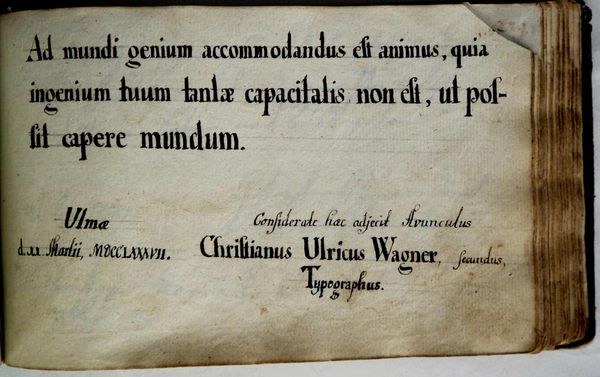 Ad mundi genium accommodandus eſt animus, quia
ingenium tuum tantæ capacitatis non eſt, ut poſ-
ſit capere mundum.
Ulmæ
d. 11. Martii, MDCCLXXXVII.
Conſiderate hæc adjecit Avunculus
Chriſtianus Ulricus Wagner, ſecundus,
Typographus.